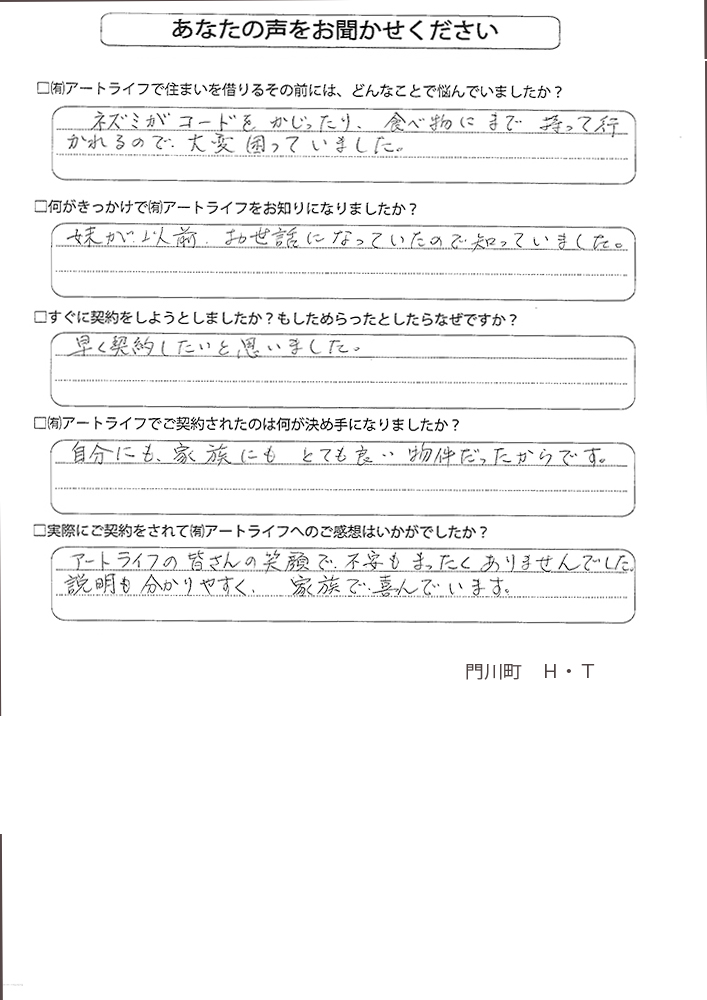 あなたの声をお聞かせください
□㈲アートライフで住まいを借りるその前には、どんなことで悩んでいましたか？
ネズミがコードをかじったり、食べ物にまで持って行
かれるので、大変困っていました。
□何がきっかけで㈲アートライフをお知りになりましたか？
妹が、以前、お世話になっていたので知っていました。
□すぐに契約をしようとしましたか？もしためらったとしたらなぜですか？
早く契約したいと思いました。
□㈲アートライフでご契約されたのは何が決め手になりましたか？
自分にも、家族にもとても良い物件だったからです。
□実際にご契約をされて㈲アートライフへのご感想はいかがでしたか？
アートライフの皆さんの笑顔で、不安もまったくありませんでした。
説明も分かりやすく、家族で喜んでいます。
門川町　H・T